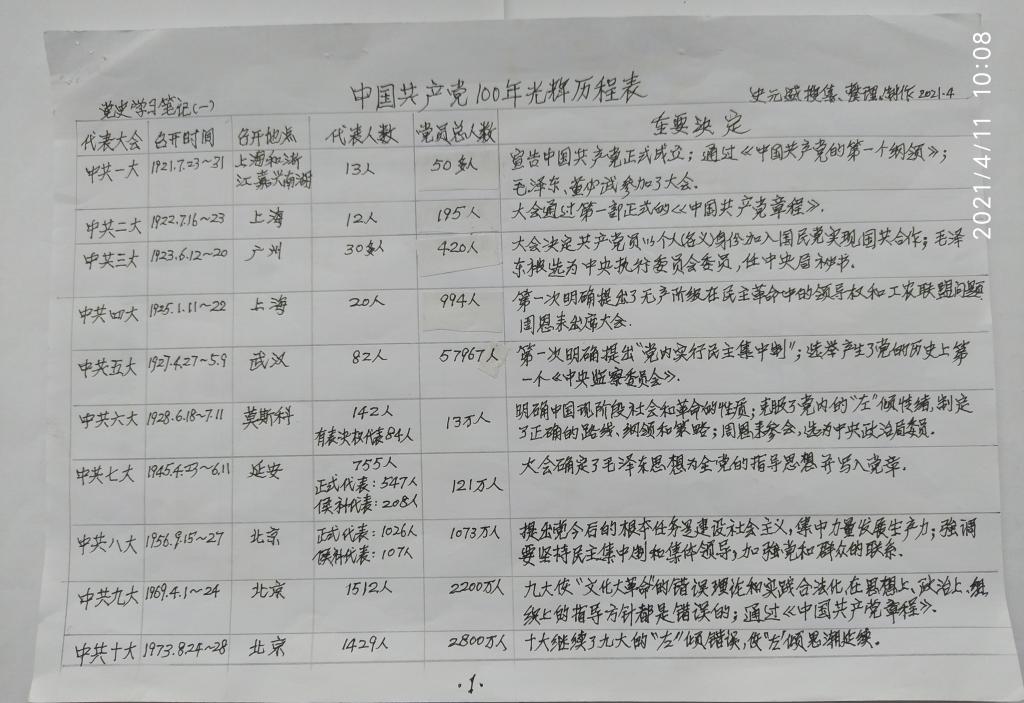 中国共产党100年光辉历程表
党史学习笔记(一)
史元 搜集、整理、制作 2021.4
代表大会 召开时间 召开地点 代表人数 党员总人数 重要决定
中共一大 1921.7.23~31 上海和浙 13人 50多人 宣告中国共产党正式成立；通过《中国共产党的第一个纲领》；
江嘉兴南湖 毛泽东、董必武参加了大会.
中共二大 1922.7.16~23 上海 12人 195人 大会通过第一部正式的《中国共产党章程》.
中共三大 1923.6.12~20 广州 30多人 420人 大会决定共产党员以个人(名义)身份加入国民党实现国共合作；毛泽
东被选为中央执行委员会委员,任中央局秘书.
中共四大 1925.1.11~22 上海 20人 994人 第一次明确提出了无产阶级在民主革命中的领导权和工农联盟问题
周恩来出席大会.
中共五大 1927.4.27~5.9 武汉 82人 57967人 第一次明确提出"党内实行民主集中制"；选举产生了党的历史上第
一个《中央监察委员会》.
中共六大 1928.6.18~7.11 莫斯科 142人 13万人 明确中国现阶段社会和革命的性质；克服了党内的"左"倾情绪,制定
有表决权代表84人 了正确的路线、纲领和策略；周恩来参会,选为中央政治局委员.
中共七大 1945.4.23~6.11 延安 755人 121万人 大会确定了毛泽东思想为全党的指导思想并写入党章.
正式代表:547人
候补代表:208人
中共八大 1956.9.15~27 北京 正式代表:1026人 1073万人 提出党今后的根本任务是建设社会主义,集中力量发展生产力；强调
候补代表:107人 要坚持民主集中制和集体领导,加强党和群众的联系.
中共九大 1969.4.1~24 北京 1512人 2200万人 九大使"文化大革命"的错误理论和实践合法化,在思想上、政治上、组
织上的指导方针都是错误的；通过《中国共产党章程》.
中共十大 1973.8.24~28 北京 1429人 2800万人 十大继续了九大的"左"倾错误,使"左"倾思潮延续。
·1·
2021/4/11 10:08